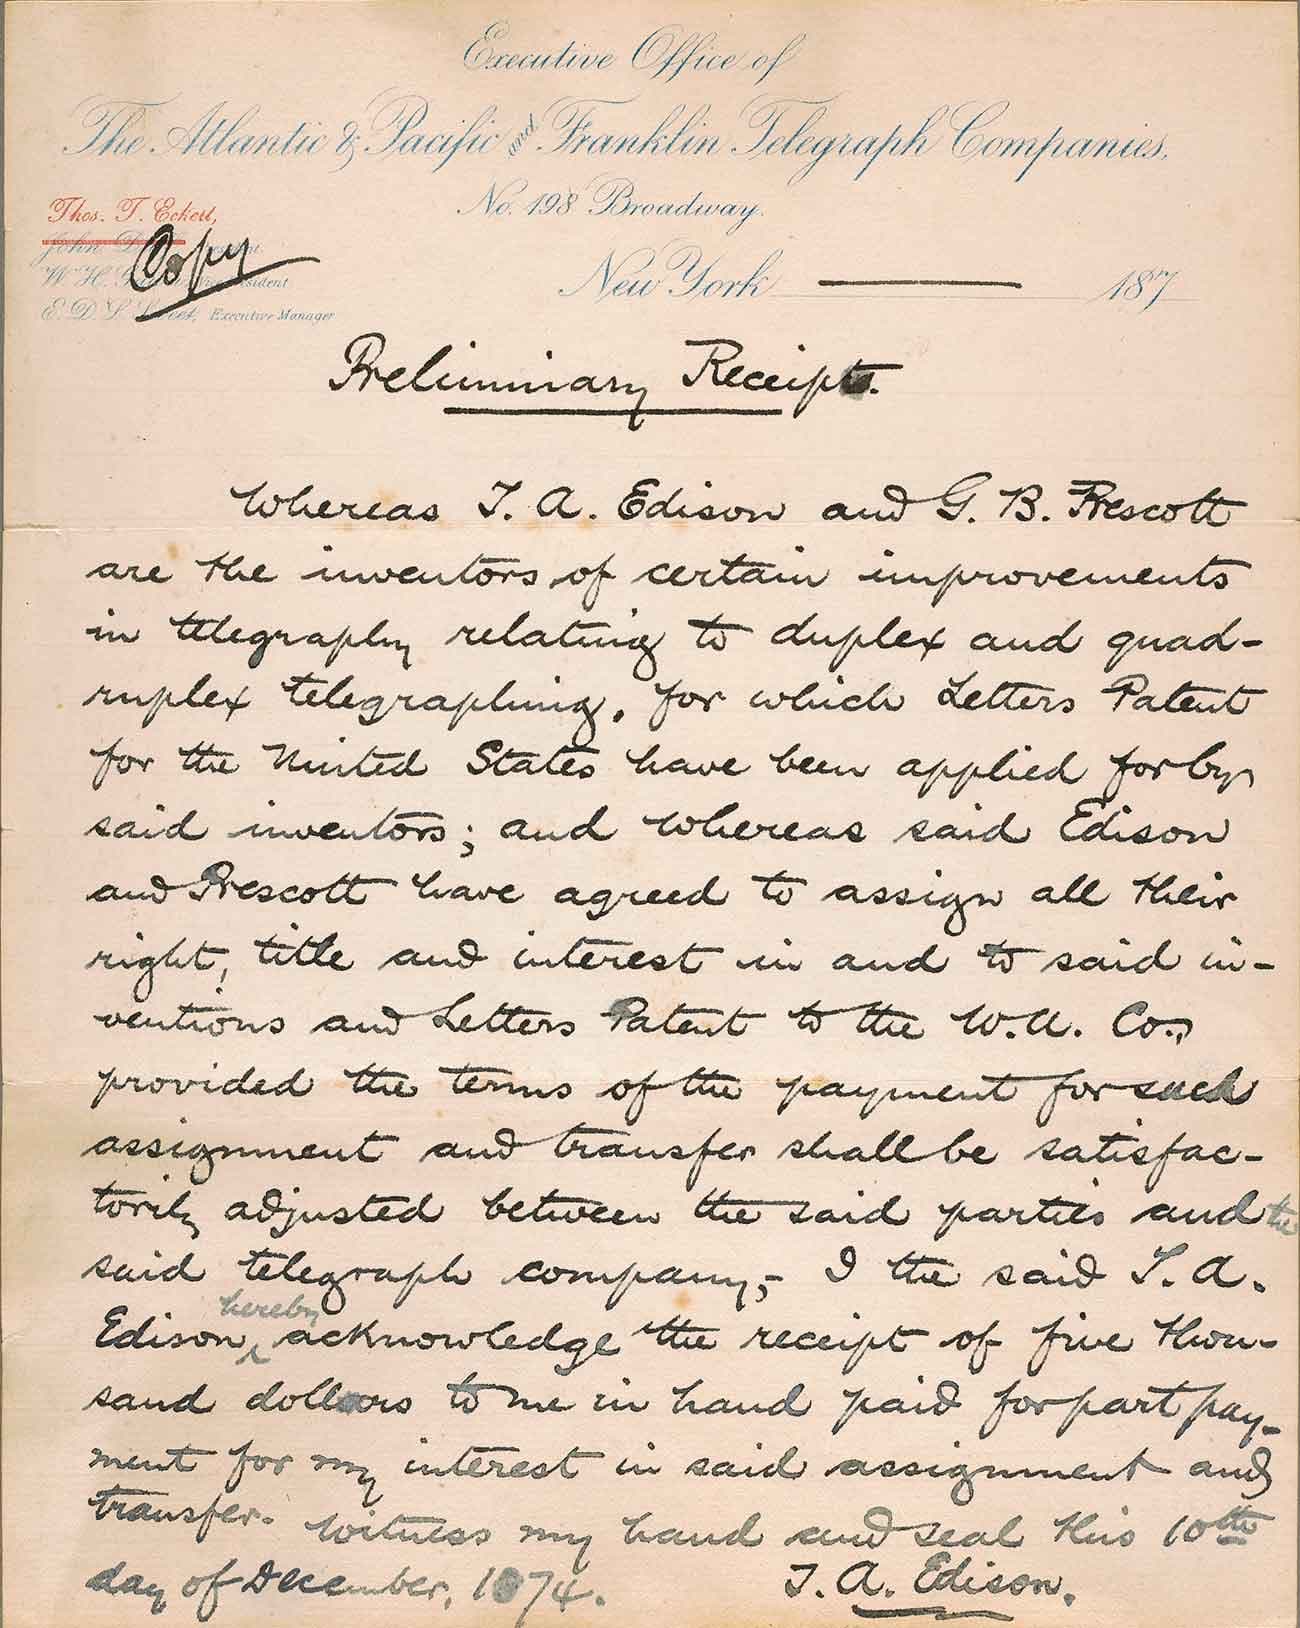 Executive Office of
The Atlantic & Pacific and Franklin Telegraph Companies.
No. 198 Broadway.
Thos. T. Eckert,
John
Copy
W. H.
E. D. L. Executive Manager
New York — 187
Preliminary Receipt.
Whereas T. A. Edison and G. B. Prescott
are the inventors of certain improvements
in telegraphy relating to duplex and quad-
ruplex telegraphing, for which Letters Patent
for the United States have been applied for by
said inventors; and whereas said Edison
and Prescott have agreed to assign all their
right, title and interest in and to said in-
ventions and Letters Patent to the W. U. Co.,
provided the terms of the payment for such
assignment and transfer shall be satisfac-
torily adjusted between the said parties and the
said telegraph company;- I the said T. A.
Edison hereby acknowledge the receipt of five thou-
sand dollars to me in hand paid for part pay-
ment for my interest in said assignment and
transfer. Witness my hand and seal this 10th
day of December, 1874. T. A. Edison.